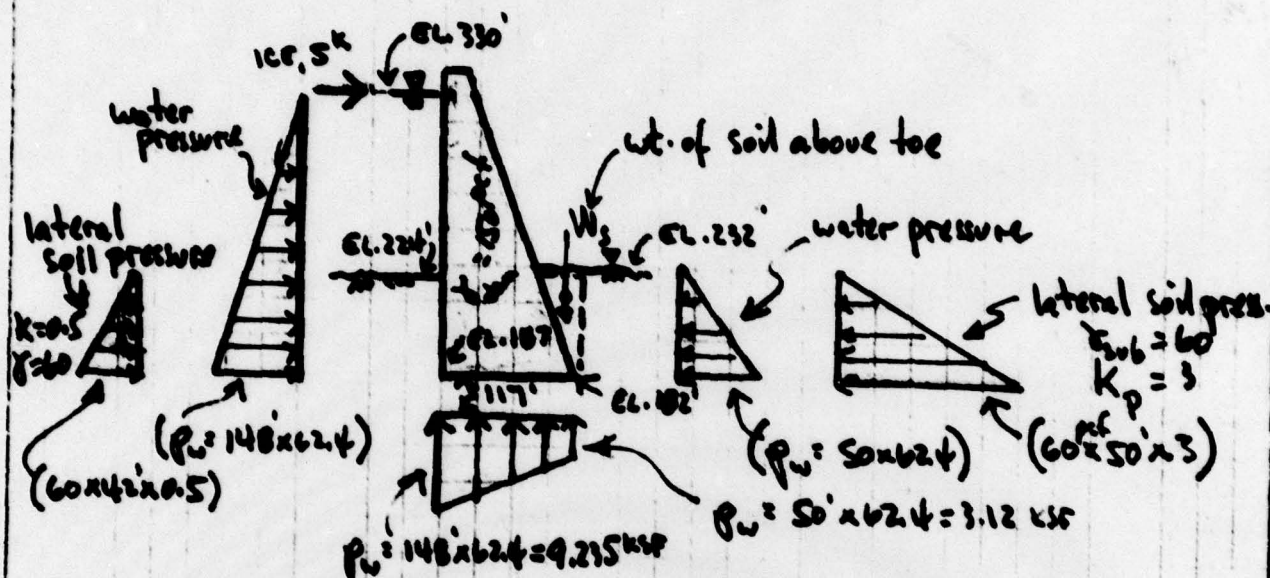 ICE, 5ᵏ
EL. 330'
water
pressure
wt. of soil above toe
lateral
soil pressure
EL. 224'
Wₛ
EL. 232'
water pressure
K=0.5
γ=60
lateral soil press.
γsub = 60
Kp = 3
EL. 187
117'
EL. 182'
(60x42'x0.5)
(pw = 148x62.4)
(pw = 50x62.4)
(60 pcf x50'x3)
pw = 50'x62.4 = 3.12 ksf
pw = 148'x62.4 = 9.235 ksf